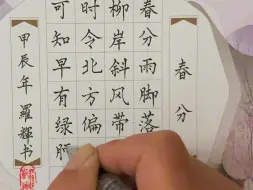 春分
春分雨脚落
柳岸斜风带
时令北方偏
可知早有绿
甲辰年羅輝书